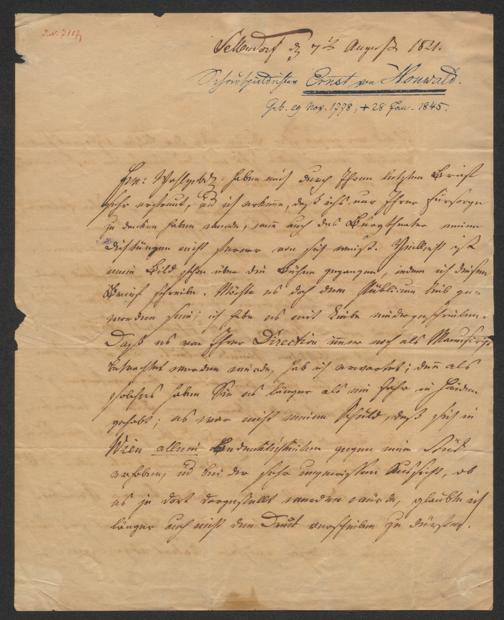 Sellendorf d 7t August 1821.
Schauspieldichter Ernst von Houwald.
Geb. 29 Nov. 1778, + 28 Jan. 1845.
Ew: Wohlgeb: haben mich durch Ihren letzten Brief
sehr erfreut, ud ich erkenne, daß ichs nur Ihrer Fürsorge
zu danken haben werde, wenn auch das Burgtheater meine
Dichtungen nicht ferner von sich weißt. Vielleicht ist
mein Bild schon über die Bühne gegangen, indem ich diesen
Brief schreibe. Möchte es doch dem Publicum lieb ge-
worden sein; ich habe es mit Liebe niedergeschrieben.
Daß es von Ihrer Direction immer noch als Manuscript
betrachtet werden würde, hab ich erwartet; denn als
solches haben Sie es länger als ein Jahr in Händen
gehabt; es war nicht meine Schuld, daß sich in
Wien allein Bedenklichkeiten gegen mein Stück
erhoben, ud bei der sehr ungewissen Aussicht, ob
es je dort dargestellt werden würde, glaubte ich
länger auch nicht den Druck verschieben zu dürfen.